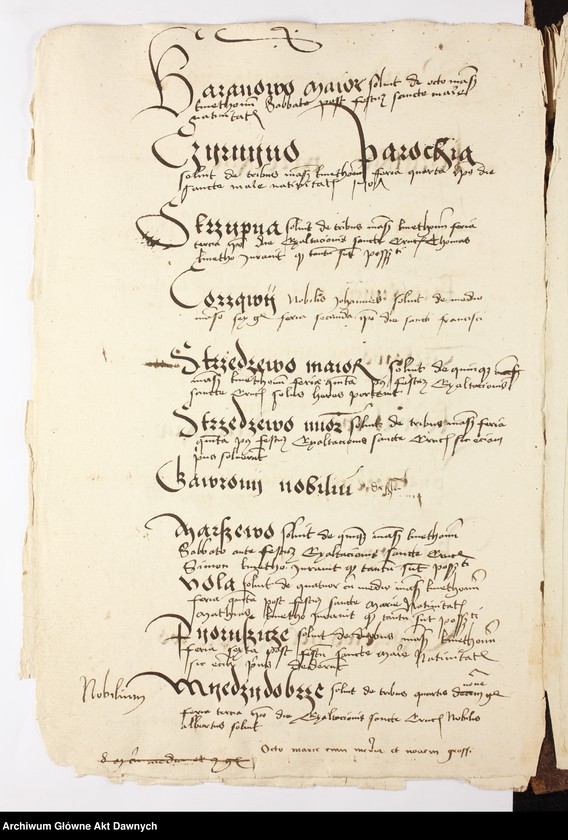 Baranowo maior soluit de octo mans
kmethonum Sabbato post festum sancte marie
Natiuitatis
Czyrmyno Parochia
soluit de tribus mans kmethonum feria quarta ipso die
sancte marie natiuitatis
Skrzypna soluit de tribus mans kmethonum feria
tercia ipso die Exaltacionis sancte Crucis Thomas
kmetho Iurauit q tantum sunt poss ti
Nobilis Iohannes soluit de medio
manso sex gr feria secunda ipo die sancti francisci
Strzedzewo maior soluit de quinque
mans kmethonum feria quinta post festum Exaltacionis
sancte Crucis
Strzedzewo minor soluit de tribus mans feria
quinta post festum Exaltacionis sancte Crucis sic eciam
prius soluerunt
Gawrony nobilium
Marszewo soluit de quinque mans kmethonum
Sabbato ante festum Exaltacionis sancte Crucis
Simon kmetho Iurauit q tantum sunt poss ti
Vola soluit de quatuor cum medio mans kmethonum
feria quinta post festum sancte Marie Natiuitatis
Mathias kmetho iurauit q tantum sunt poss ti
soluit de duobus mans kmethonum
feria sexta post festum sancte Marie Natiuitatis
sic eciam prius dederunt
Nobilium Myedzydobrze soluit de tribus quartis decem none gr
feria tercia ipo die Exaltacionis sancte Crucis Nobilis
albertus soluit
Octo marce cum media et nouem gross.
Archiwum Główne Akt Dawnych